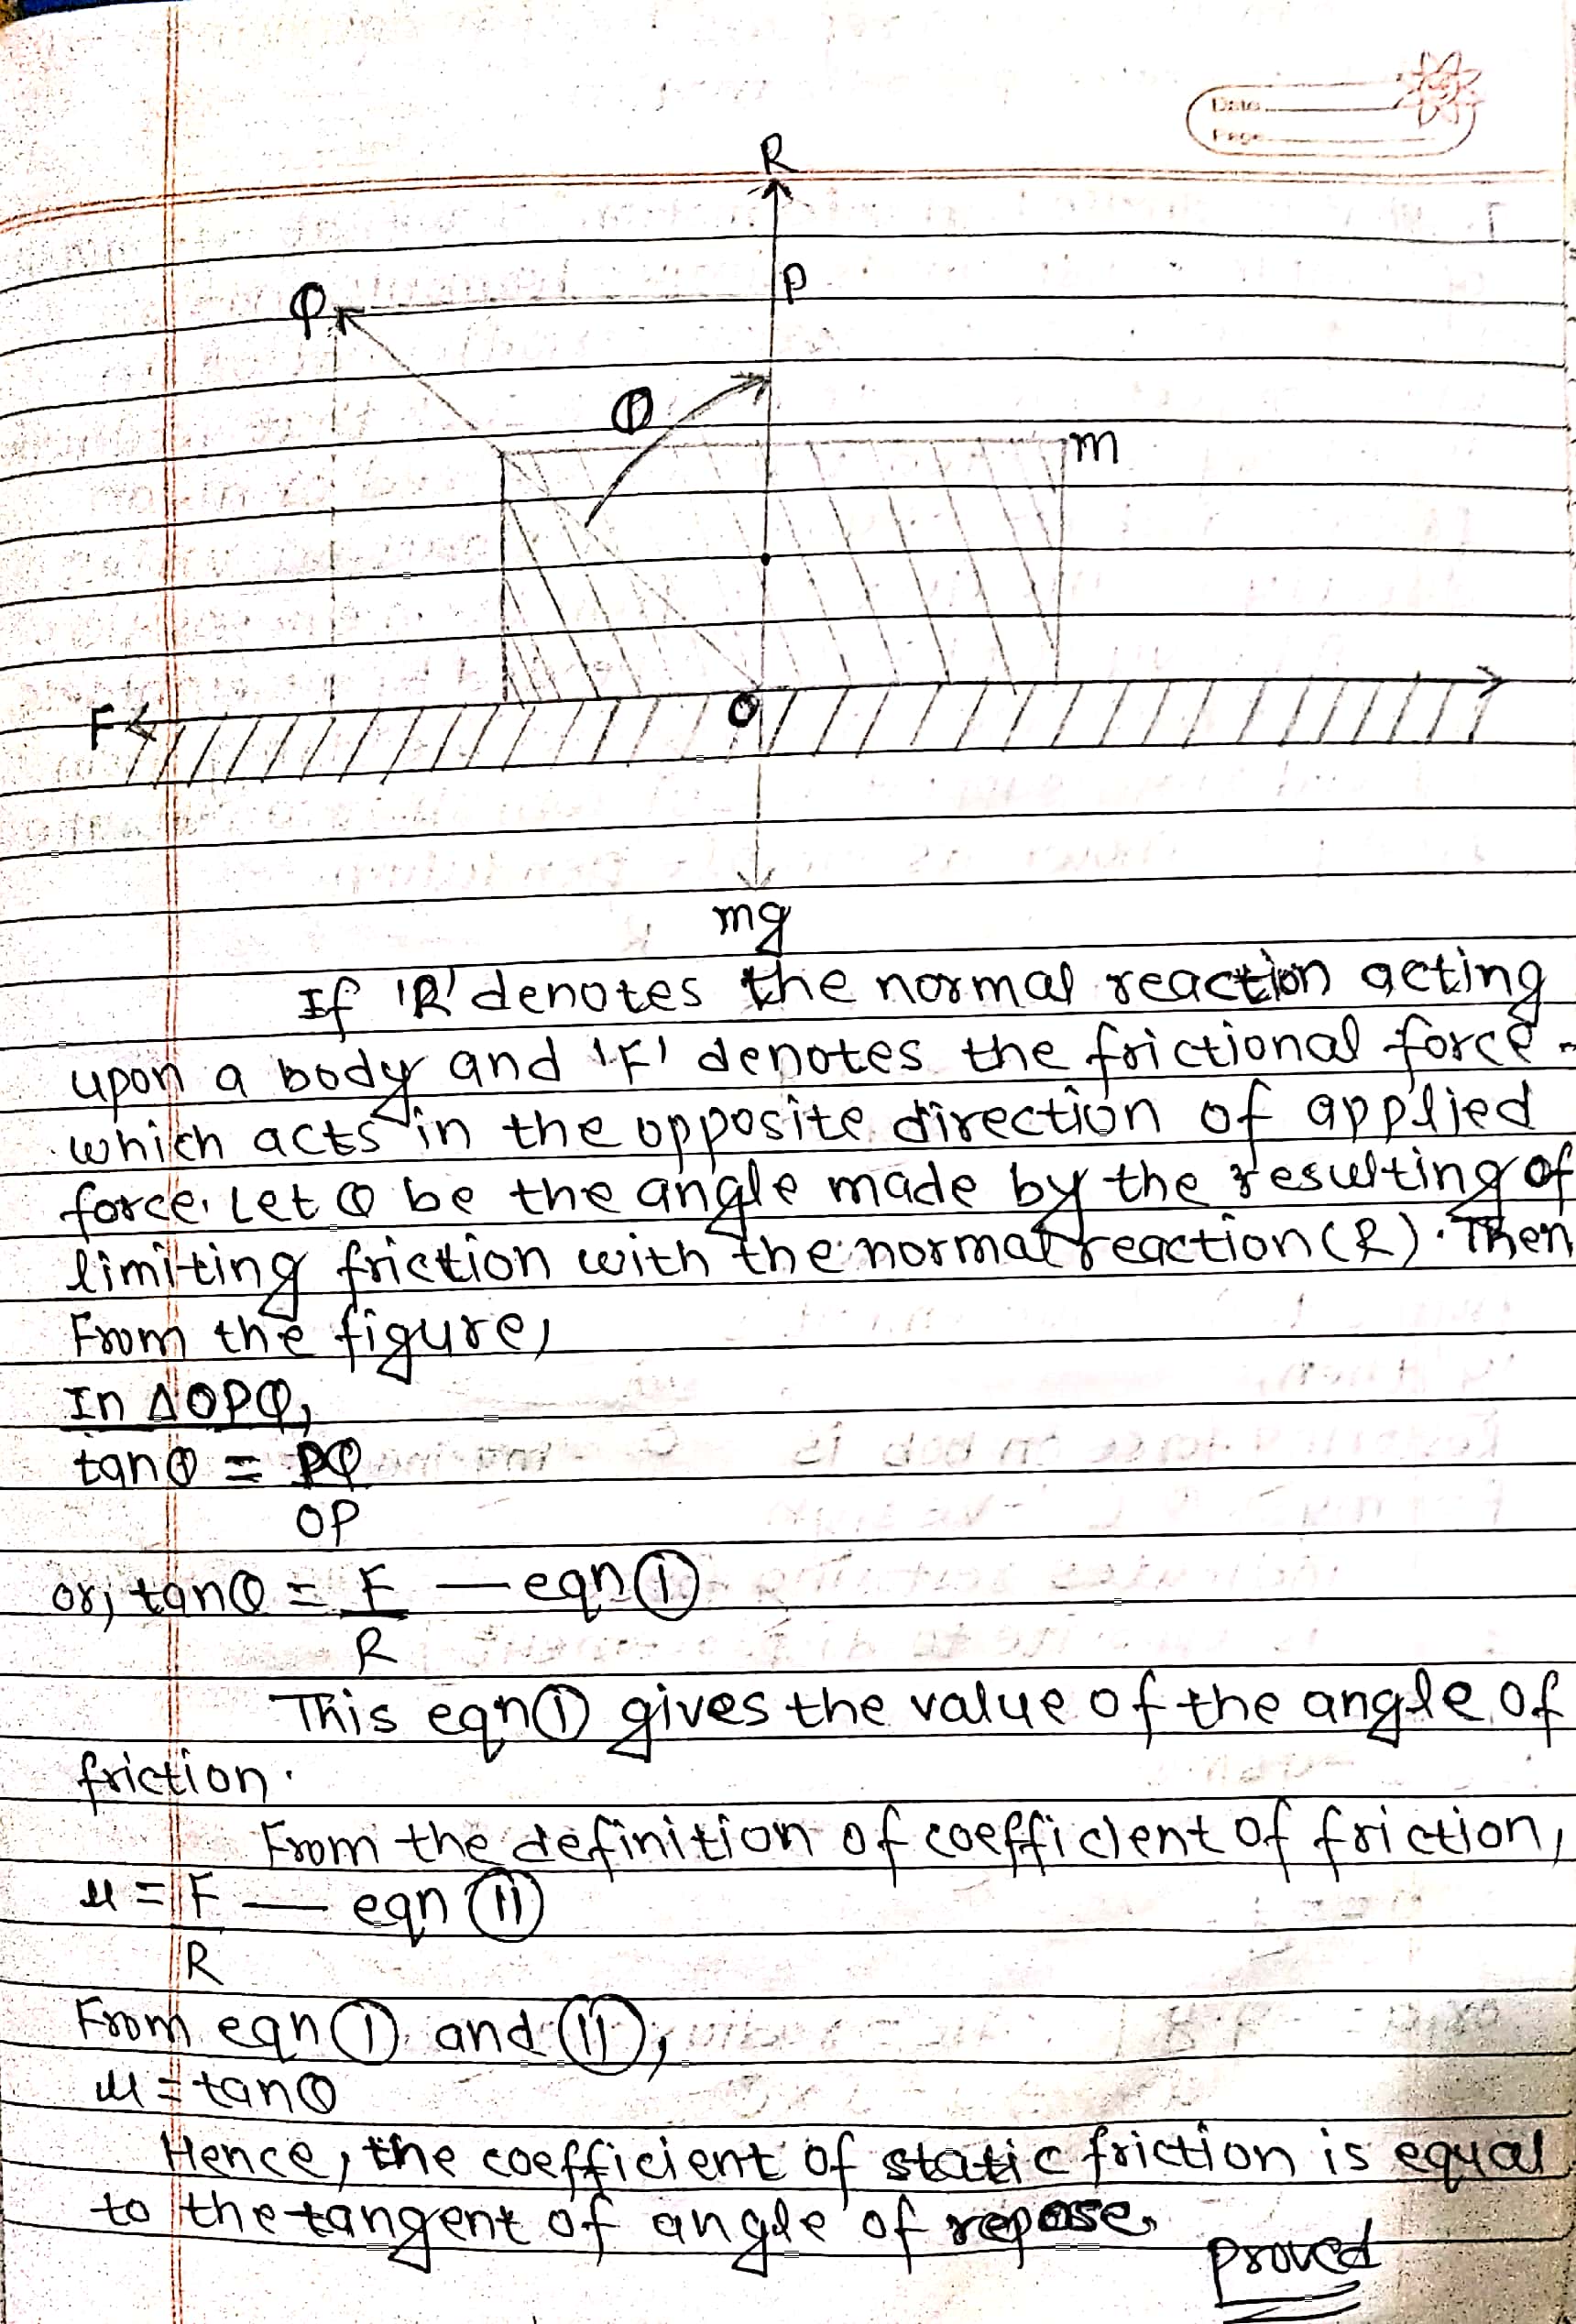 Date
Page
R
P
Q
θ
m
F
O
mg
If 'R' denotes the normal reaction acting
upon a body and 'F' denotes the frictional force
which acts in the opposite direction of applied
force. Let θ be the angle made by the resulting of
limiting friction with the normal reaction (R). Then
From the figure,
In ΔOPQ,
tanθ = PQ
OP
or, tanθ = F — eqn (i)
R
This eqn (i) gives the value of the angle of
friction.
From the definition of coefficient of friction,
μ = F — eqn (ii)
R
From eqn (i) and (ii),
μ = tanθ
Hence, the coefficient of static friction is equal
to the tangent of angle of repose.
proved